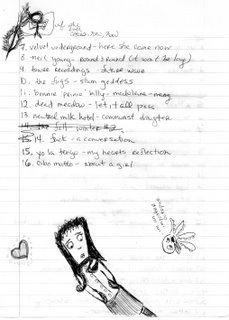 7. velvet underground - here she come now
8. neil young - round & round (it won't be long)
9. tower recordings -
10. the fugs - slum goddess
11. bonnie prince billy - madeleine-mary
12. dead meadow - let it all pass
13 neutral milk hotel - communist daughter
14. the fall - winter #2
14. fuck - a conversation
15. yo la tengo - my hearts reflection
16. Cibo matto - about a girl